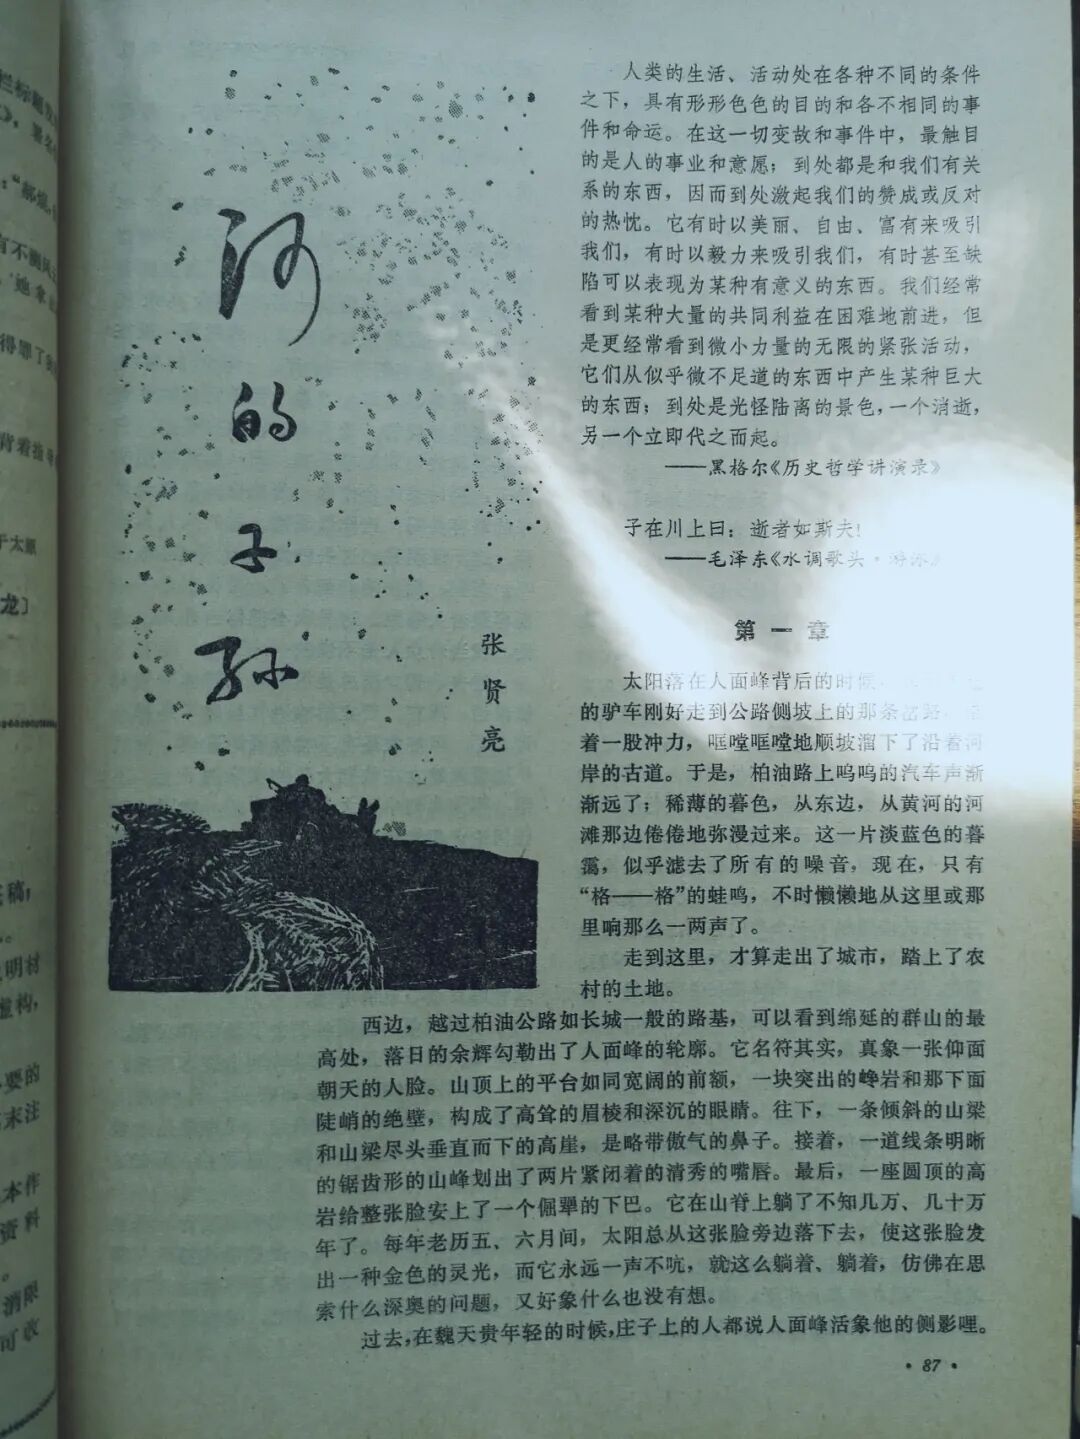 河的子孙
张贤亮
人类的生活、活动处在各种不同的条件
之下，具有形形色色的目的和各不相同的事
件和命运。在这一切变故和事件中，最触目
的是人的事业和意愿；到处都是和我们有关
系的东西，因而到处激起我们的赞成或反对
的热忱。它有时以美丽、自由、富有来吸引
我们，有时以毅力来吸引我们，有时甚至缺
陷可以表现为某种有意义的东西。我们经常
看到某种大量的共同利益在困难地前进，但
是更经常看到微小力量的无限的紧张活动，
它们从似乎微不足道的东西中产生某种巨大
的东西；到处是光怪陆离的景色，一个消逝，
另一个立即代之而起。
——黑格尔《历史哲学讲演录》
子在川上曰：逝者如斯夫！
——毛泽东《水调歌头·游泳》
第一章
太阳落在人面峰背后的时候
的驴车刚好走到公路侧坡上的那条岔路
着一股冲力，哐嘡哐嘡地顺坡溜下了沿着河
岸的古道。于是，柏油路上呜呜的汽车声渐
渐远了；稀薄的暮色，从东边，从黄河的河
滩那边倦倦地弥漫过来。这一片淡蓝色的暮
霭，似乎滤去了所有的噪音，现在，只有
“格——格”的蛙鸣，不时懒懒地从这里或那
里响那么一两声了。
走到这里，才算走出了城市，踏上了农
村的土地。
西边，越过柏油公路如长城一般的路基，可以看到绵延的群山的最
高处，落日的余辉勾勒出了人面峰的轮廓。它名符其实，真象一张仰面
朝天的人脸。山顶上的平台如同宽阔的前额，一块突出的巉岩和那下面
陡峭的绝壁，构成了高耸的眉棱和深沉的眼睛。往下，一条倾斜的山梁
和山梁尽头垂直而下的高崖，是略带傲气的鼻子。接着，一道线条明晰
的锯齿形的山峰划出了两片紧闭着的清秀的嘴唇。最后，一座圆顶的高
岩给整张脸安上了一个倔犟的下巴。它在山脊上躺了不知几万、几十万
年了。每年老历五、六月间，太阳总从这张脸旁边落下去，使这张脸发
出一种金色的灵光，而它永远一声不吭，就这么躺着、躺着，仿佛在思
索什么深奥的问题，又好象什么也没有想。
过去，在魏天贵年轻的时候，庄子上的人都说人面峰活象他的侧影哩。
·87·